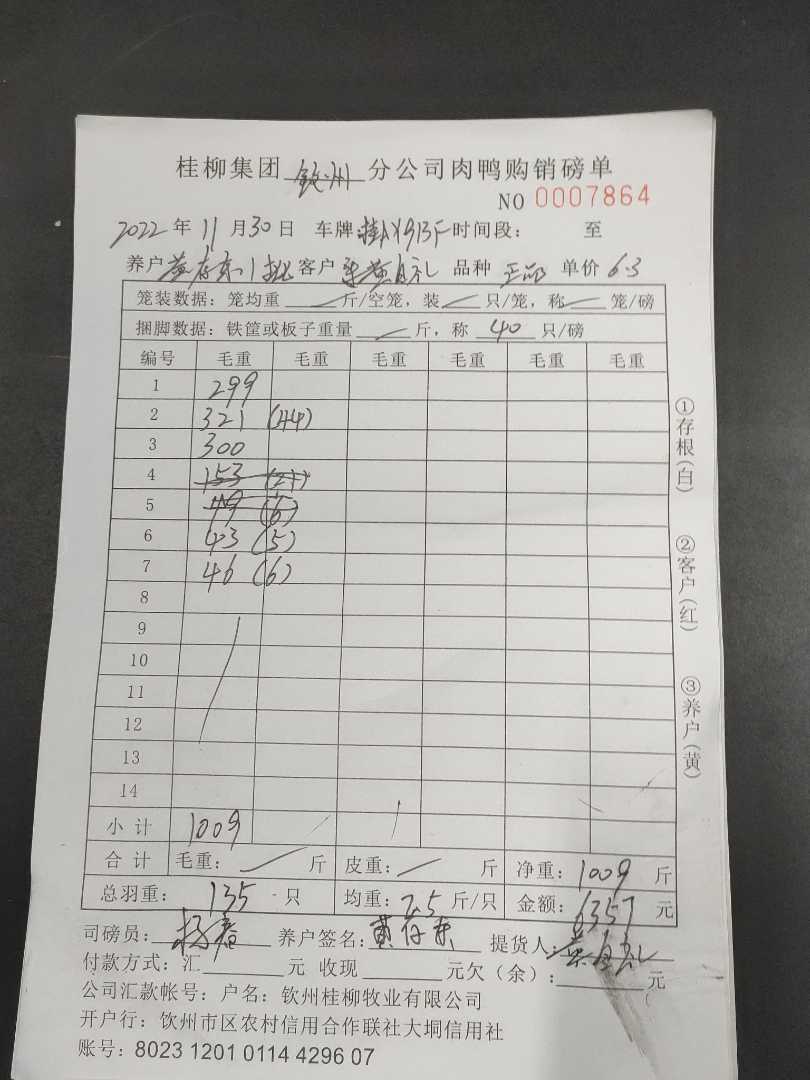 桂柳集团 钦州 分公司肉鸭购销磅单
NO 0007864
2022 年 11 月 30 日 车牌 桂AY913F 时间段： 至
养户 黄存东 1批 客户 自礼 品种 单价 6.3
笼装数据：笼均重 斤/空笼，装 只/笼，称 笼/磅
捆脚数据：铁筐或板子重量 斤，称 40 只/磅
编号 毛重 毛重 毛重 毛重 毛重 毛重
1 299
2 321 (44)
3 300
4 153 (21)
5 49 (6)
6 43 (5)
7 46 (6)
8
9
10
11
12
13
14
小计 1009
合计 毛重： 斤 皮重： 斤 净重：1009 斤
总羽重： 135 只 均重：7.5 斤/只 金额：6357 元
司磅员： 杨 养户签名：黄存东 提货人： 自礼
付款方式：汇 元 收现 元欠（余）： 元
公司汇款帐号：户名：钦州桂柳牧业有限公司
开户行：钦州市区农村信用合作联社大垌信用社
账号：8023 1201 0114 4296 07
①存根(白)
②客户(红)
③养户(黄)